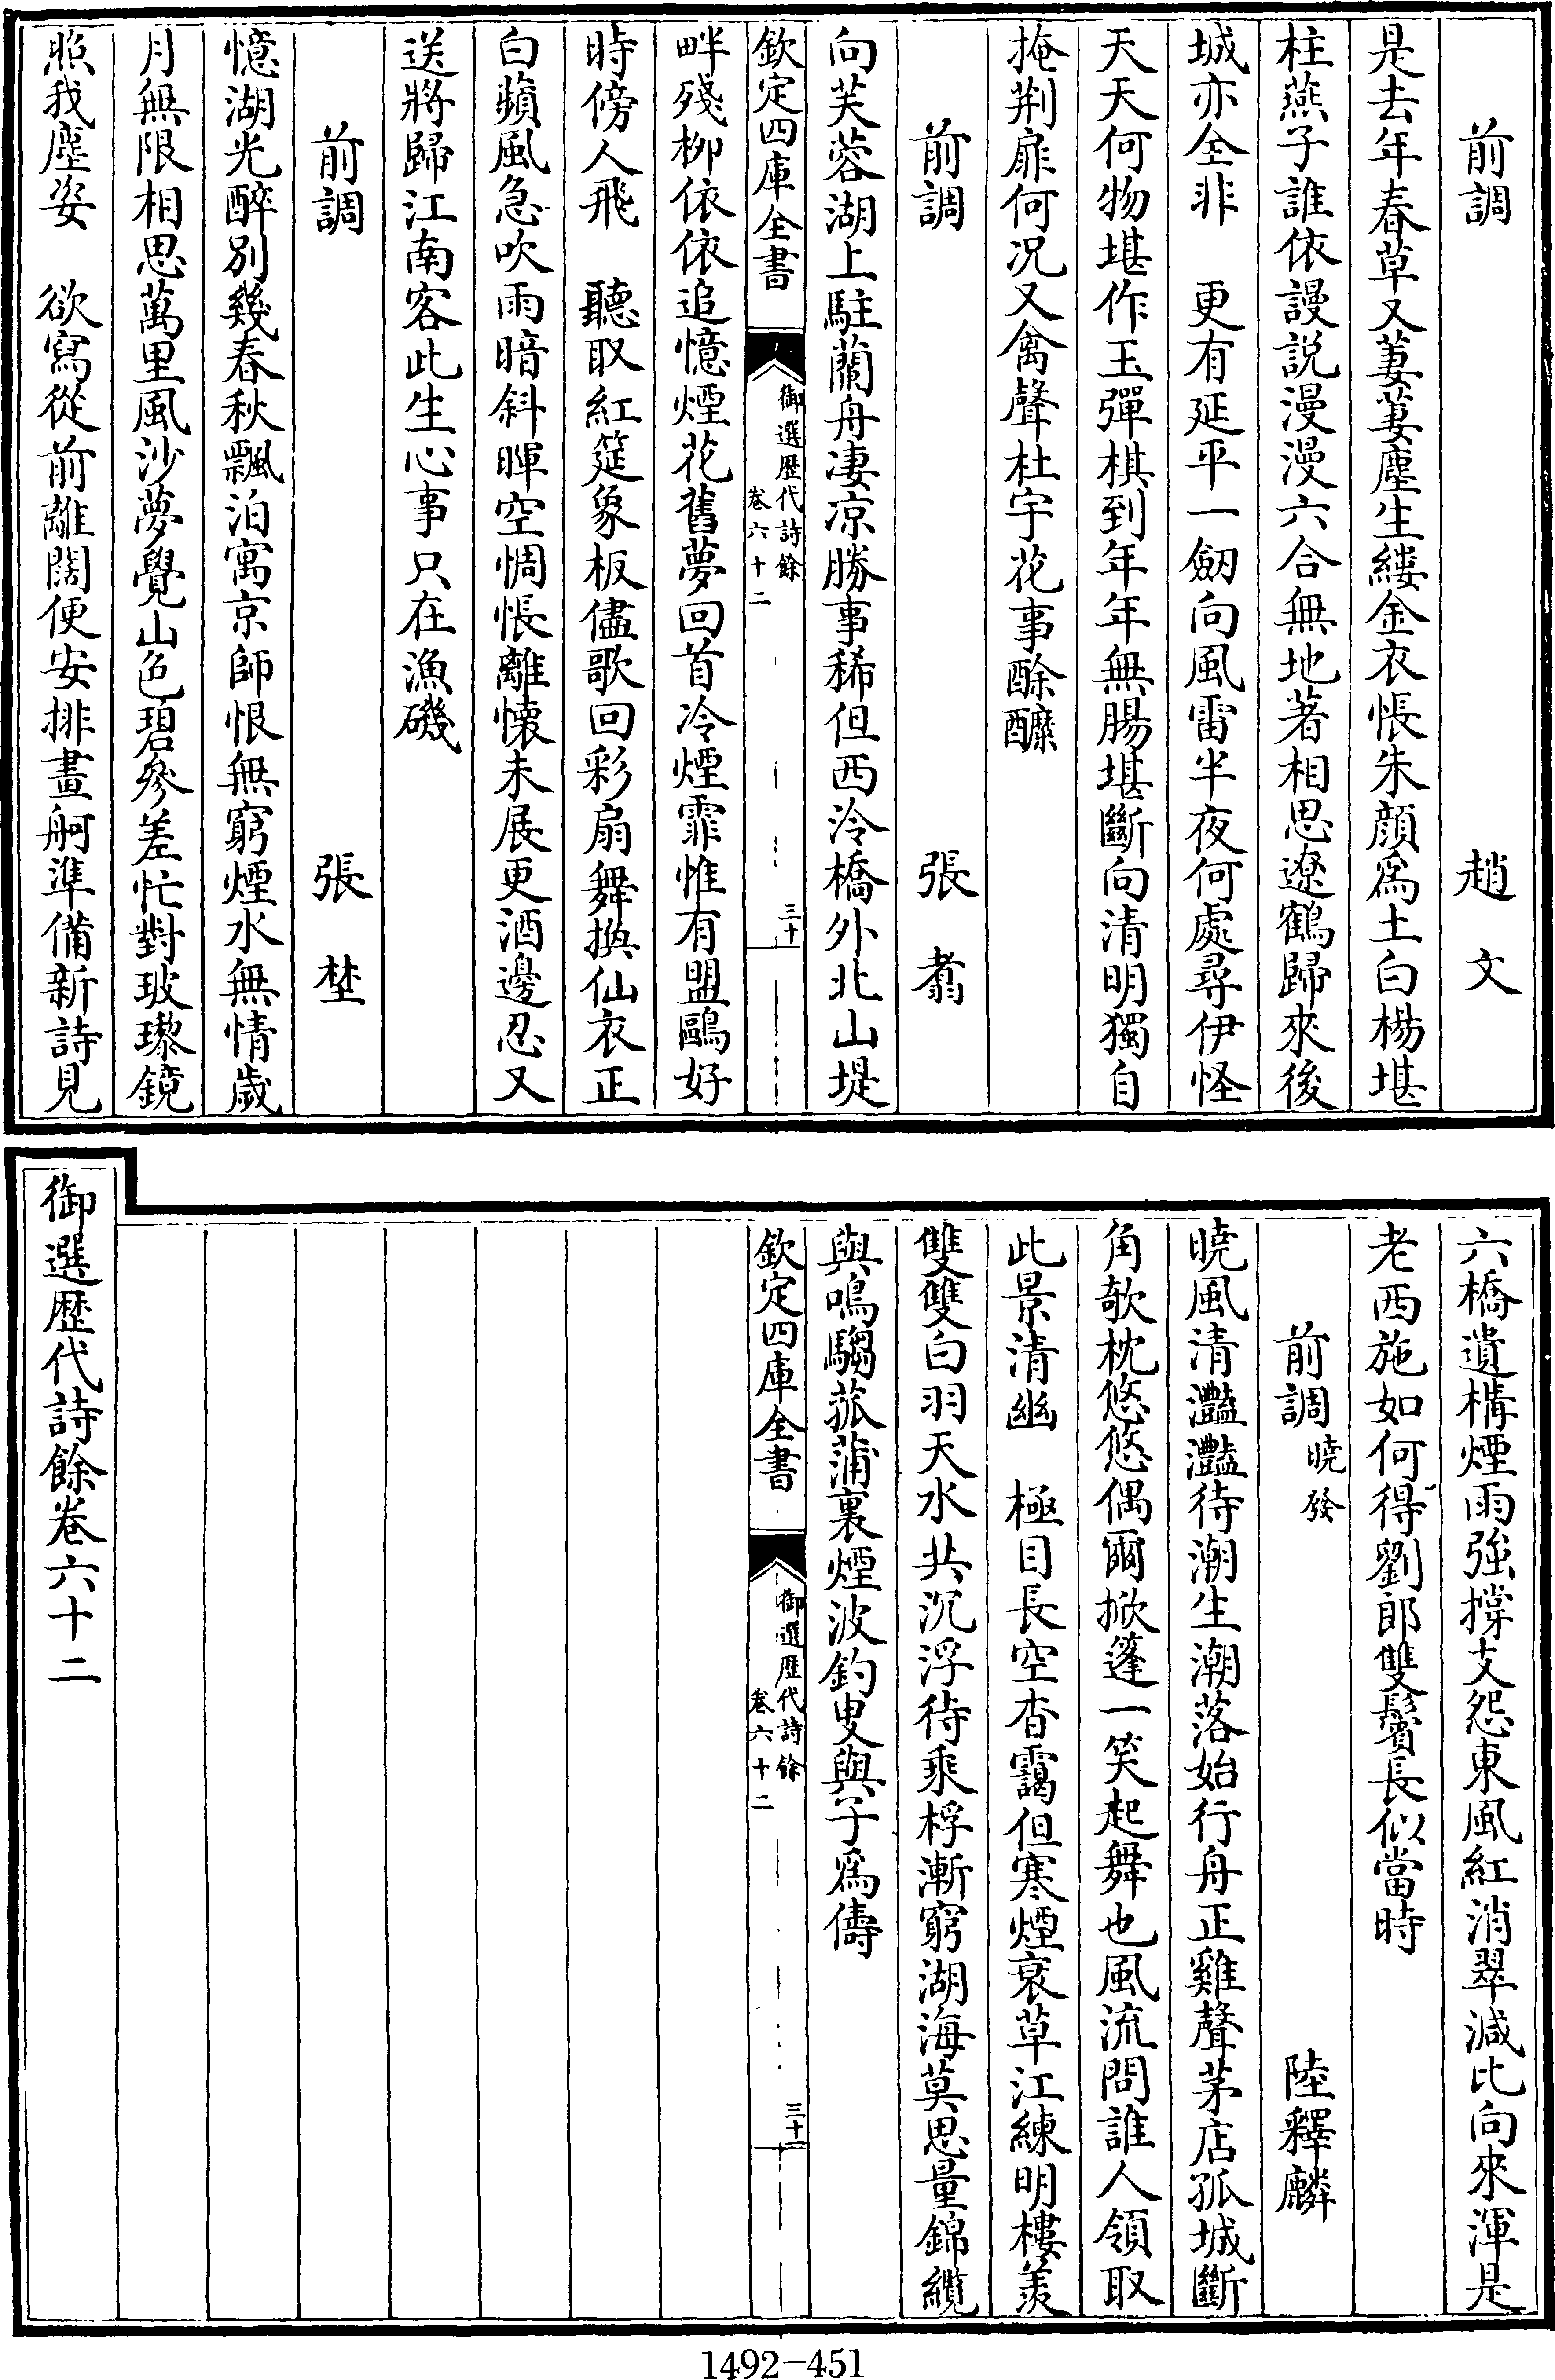 前調　趙　文
是去年春草又萋萋塵生縷金衣悵朱顔爲土白楊堪
柱燕子誰依謾説漫漫六合無地著相思遼鶴歸來後
城亦全非　更有延平一劒向風雷半夜何處尋伊怪
天天何物堪作玉彈棋到年年無腸堪斷向清明獨自
掩荆扉何况又禽聲杜宇花事酴醾
前調　張　翥
向芙蓉湖上駐蘭舟凄凉勝事稀但西泠橋外北山堤
欽定四庫全書
御選歴代詩餘
卷六十二
三十
畔殘栁依依追憶煙花舊夢回首冷煙霏惟有盟鷗好
時傍人飛　聽取紅筵象板儘歌回彩扇舞換仙衣正
白蘋風急吹雨暗斜暉空惆悵離懐未展更酒邊忍又
送將歸江南客此生心事只在漁磯
前調　張　埜
憶湖光醉别幾春秋飄泊寓京師恨無窮煙水無情歲
月無限相思萬里風沙夢覺山色碧參差忙對玻瓈鏡
照我塵姿　欲寫從前離闊便安排畫舸凖備新詩見
六橋遺構煙雨強撑支怨東風紅消翠減比向來渾是
老西施如何得劉郎雙鬢長似當時
前調曉發　陸釋麟
曉風清灩灩待潮生潮落始行舟正雞聲茅店孤城斷
角欹枕悠悠偶爾掀篷一笑起舞也風流問誰人領取
此景清幽　極目長空杳靄但寒煙衰草江練明樓羡
雙雙白羽天水共沉浮待乘桴漸窮湖海莫思量錦纜
與鳴騶菰蒲裏煙波釣叟與子爲儔
欽定四庫全書
御選歴代詩餘
卷六十二
三十一
御選歴代詩餘卷六十二
1492-451